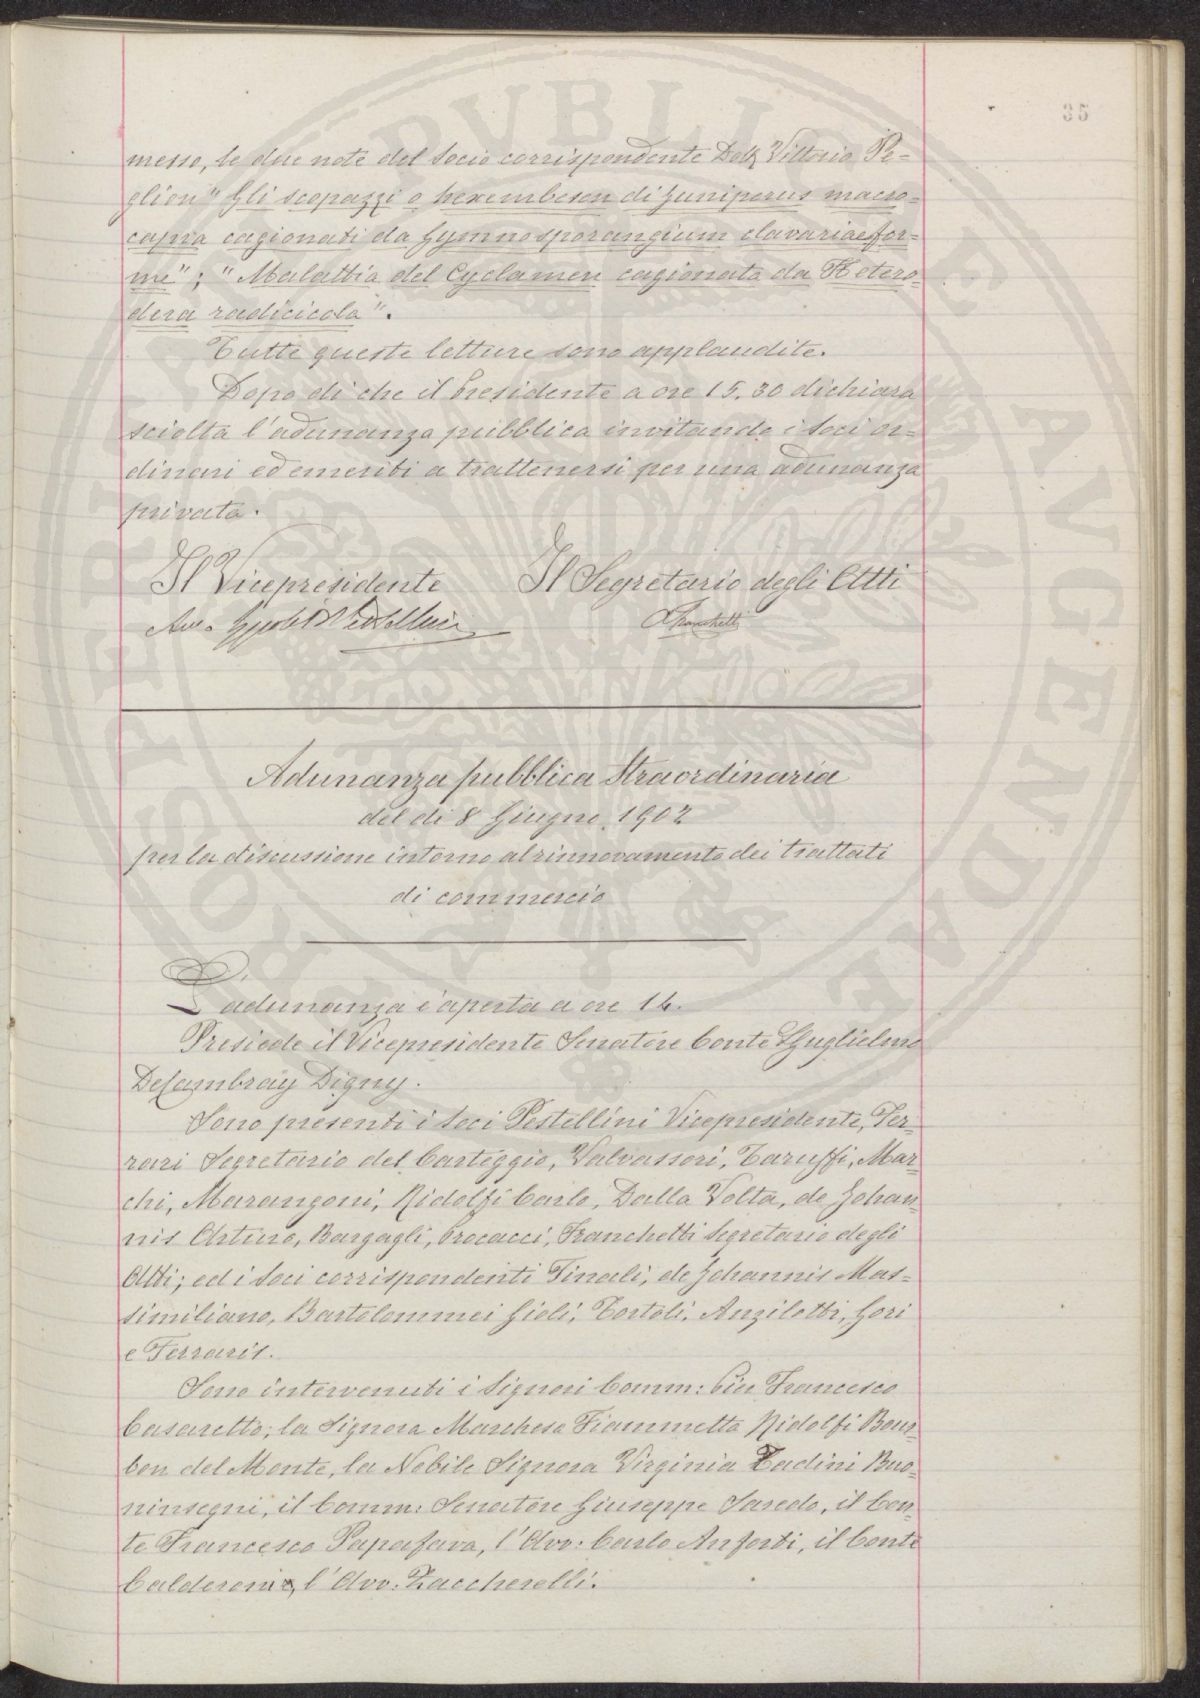 messo, le due note del Socio corrispondente Dott Vittorio Pe-
glion "Gli scopazzi o hexembesen di Juniperus macro-
carpa cagionati da Gymnosporangium clavariaefor-
me"; "Malattia del Cyclamen cagionata da Hetero-
dera radicicola".
Tutte queste letture sono applaudite.
Dopo di che il Presidente a ore 15,30 dichiara
sciolta l'adunanza pubblica invitando i Soci or-
dinari ed emeriti a trattenersi per una adunanza
privata.
Il Vicepresidente Il Segretario degli Atti
Avv. Pestellini Franchetti
Adunanza pubblica Straordinaria
del dì 8 Giugno 1902
per la discussione intorno al rinnovamento dei trattati
di commercio
L'adunanza è aperta a ore 14.
Presiede il Vicepresidente Senatore Conte Guglielmo
De Cambray Digny.
Sono presenti i Soci Pestellini Vicepresidente, Fer-
rari Segretario del Carteggio, Valvassori, Taruffi, Mar-
chi, Marangoni, Ridolfi Carlo, Dalla Volta, de Johan-
nis Arturo, Bargagli, Procacci, Franchetti Segretario degli
Atti; ed i Soci corrispondenti Tinali, de Johannis Mas-
similiano, Bartolommei Gioli, Tortoli, Anzilotti, Gori
e Ferraris.
Sono intervenuti i Signori Comm: Pier Francesco
Casaretto; la Signora Marchesa Fiammetta Ridolfi Bour-
bon del Monte, la Nobile Signora Virginia Tadini Buo-
ninsegni, il Comm: Senatore Giuseppe Saredo, il Con-
te Francesco Papafava, l'Avv: Carlo Anforti, il Conte
Calderoni e, l'Avv. Zaccherelli.
PVBLICAE AVGENDAE PROSPERITATI